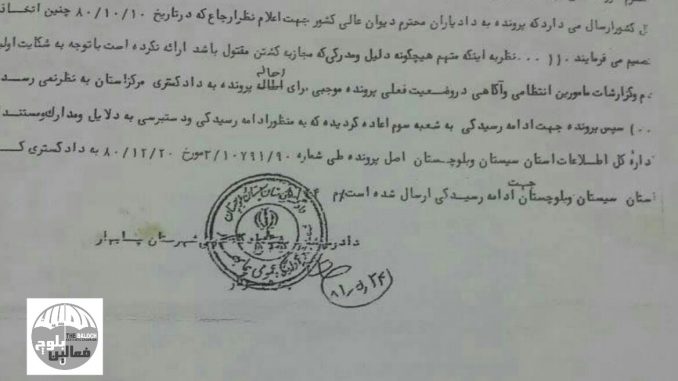 ل کشورارسال می دارد که پرونده به دادیاران محترم دیوان عالی کشور جهت اعلام نظر ارجاع که در تاریخ ۸۰/۱۰/۱۰ چنین اتخاذ
تصمیم می فرمایند ((۰۰۰ نظر به اینکه متهم هیچگونه دلیل و مدرکی که مجاز به کشتن مقتول باشد ارائه نکرده است با توجه به شکایت اولیا
دم وگزارشات مامورین انتظامی وآگاهی در وضعیت فعلی پرونده موجبی برای احاله پرونده به دادگستری مرکز استان به نظر نمی رسد
۰۰) سپس پرونده جهت ادامه رسیدگی به شعبه سوم اعاده گردیده که به منظور ادامه رسیدگی ودستبرسی به دلایل ومدارک ومستند
داره کل اطلاعات استان سیستان وبلوچستان اصل پرونده طی شماره ۳/۱۰۷۹۱/۹۰ مورخ ۸۰/۱۲/۲۰ به دادگستری ک
استان سیستان وبلوچستان جهت ادامه رسیدگی ارسال شده است
شهرستان چابهار
۸۱/۵/۲۴
THE BALOCH
فعالین بلوچ